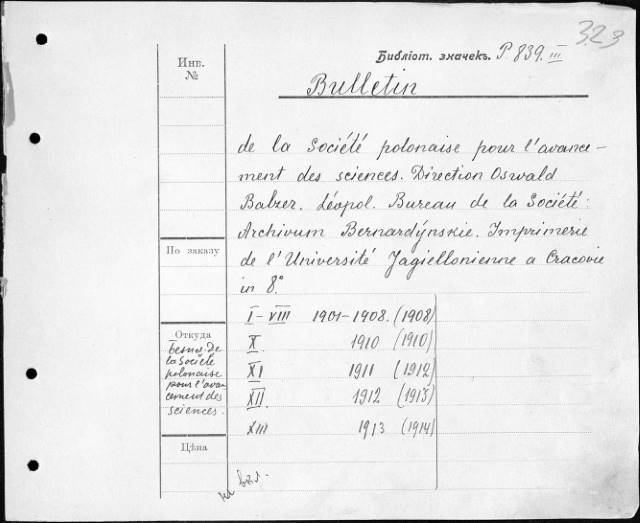 323
Библіот. значекъ. P. 839. III
Инв.
№
Bulletin
de la Société polonaise pour l'avance-
ment des sciences. Direction Oswald
Balzer. Léopol. Bureau de la Société:
Archivum Bernardýnskie. Imprimerie
de l'Université Jagiellonienne a Cracovie
in 8.°
По заказу
I-VIII 1901-1908. (1908)
X. 1910 (1910)
XI 1911 (1912)
XII 1912 (1913)
XIII 1913 (1914)
Откуда
безпл. De
la Société
polonaise
pour l'avan
cement des
sciences.
Цѣна